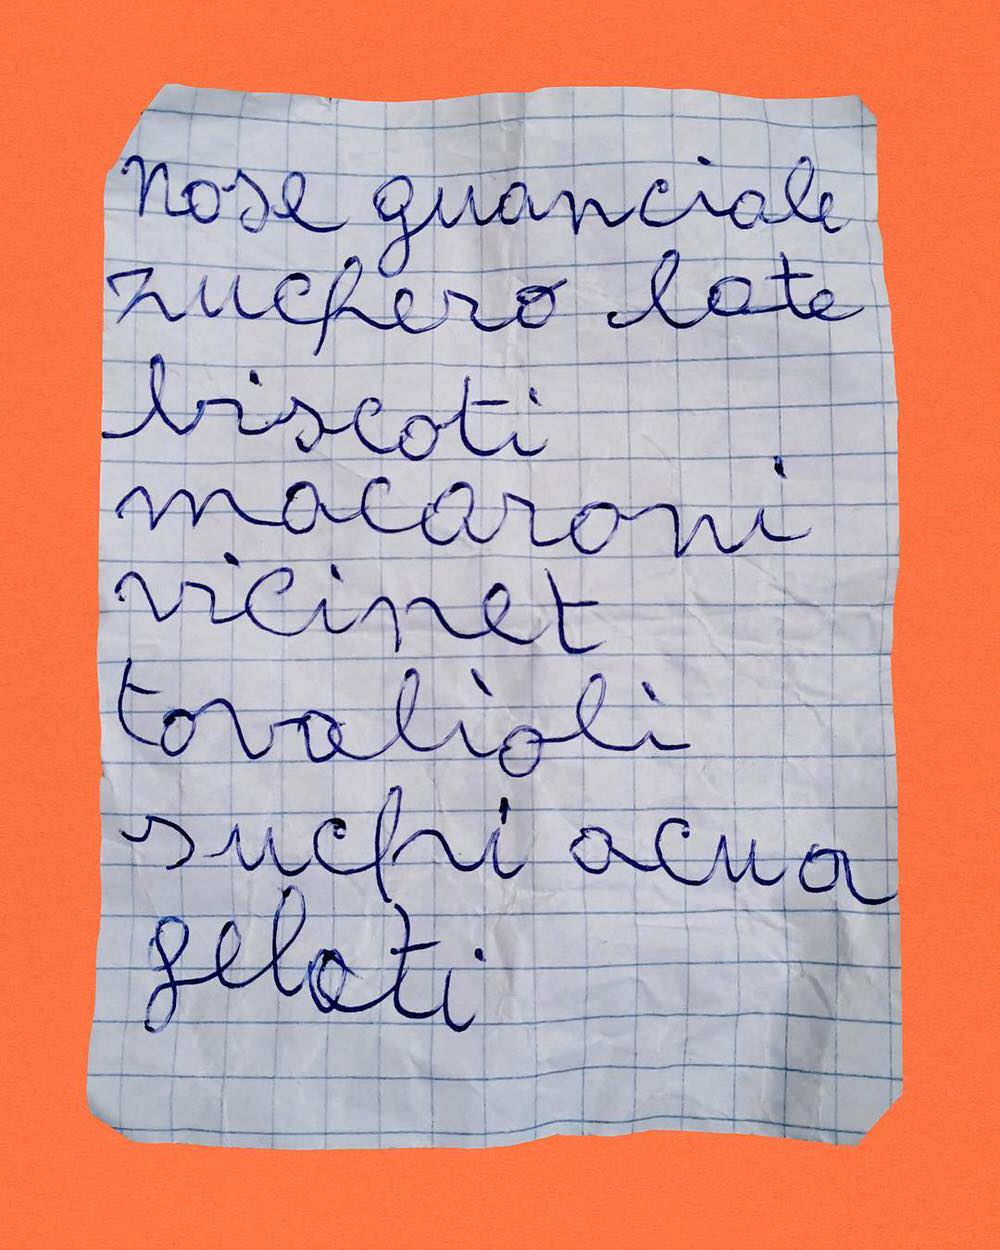 nose guanciale
zuchero late
biscoti
macaroni
vicinet
tovalioli
suchi acua
gelati